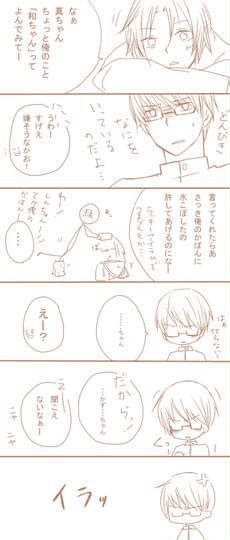 なぁ
真ちゃん
ちょっと俺のこと
「和ちゃん」って
よんでみてー
なにを
いっている
のだよ…
どんびき
うわー
すげぇ
嫌そうなかおー
言ってくれたらあ
さっき俺のかばんに
水こぼしたの
許してあげるのになー
わーっ
しんちゃーん
てか俺の
かばんー
緑
ばしゃ
……
えー?
……ちゃん
だから、
……かず…ちゃん
聞こえ
ないなぁー
ニヤ
ニヤ
イラッ